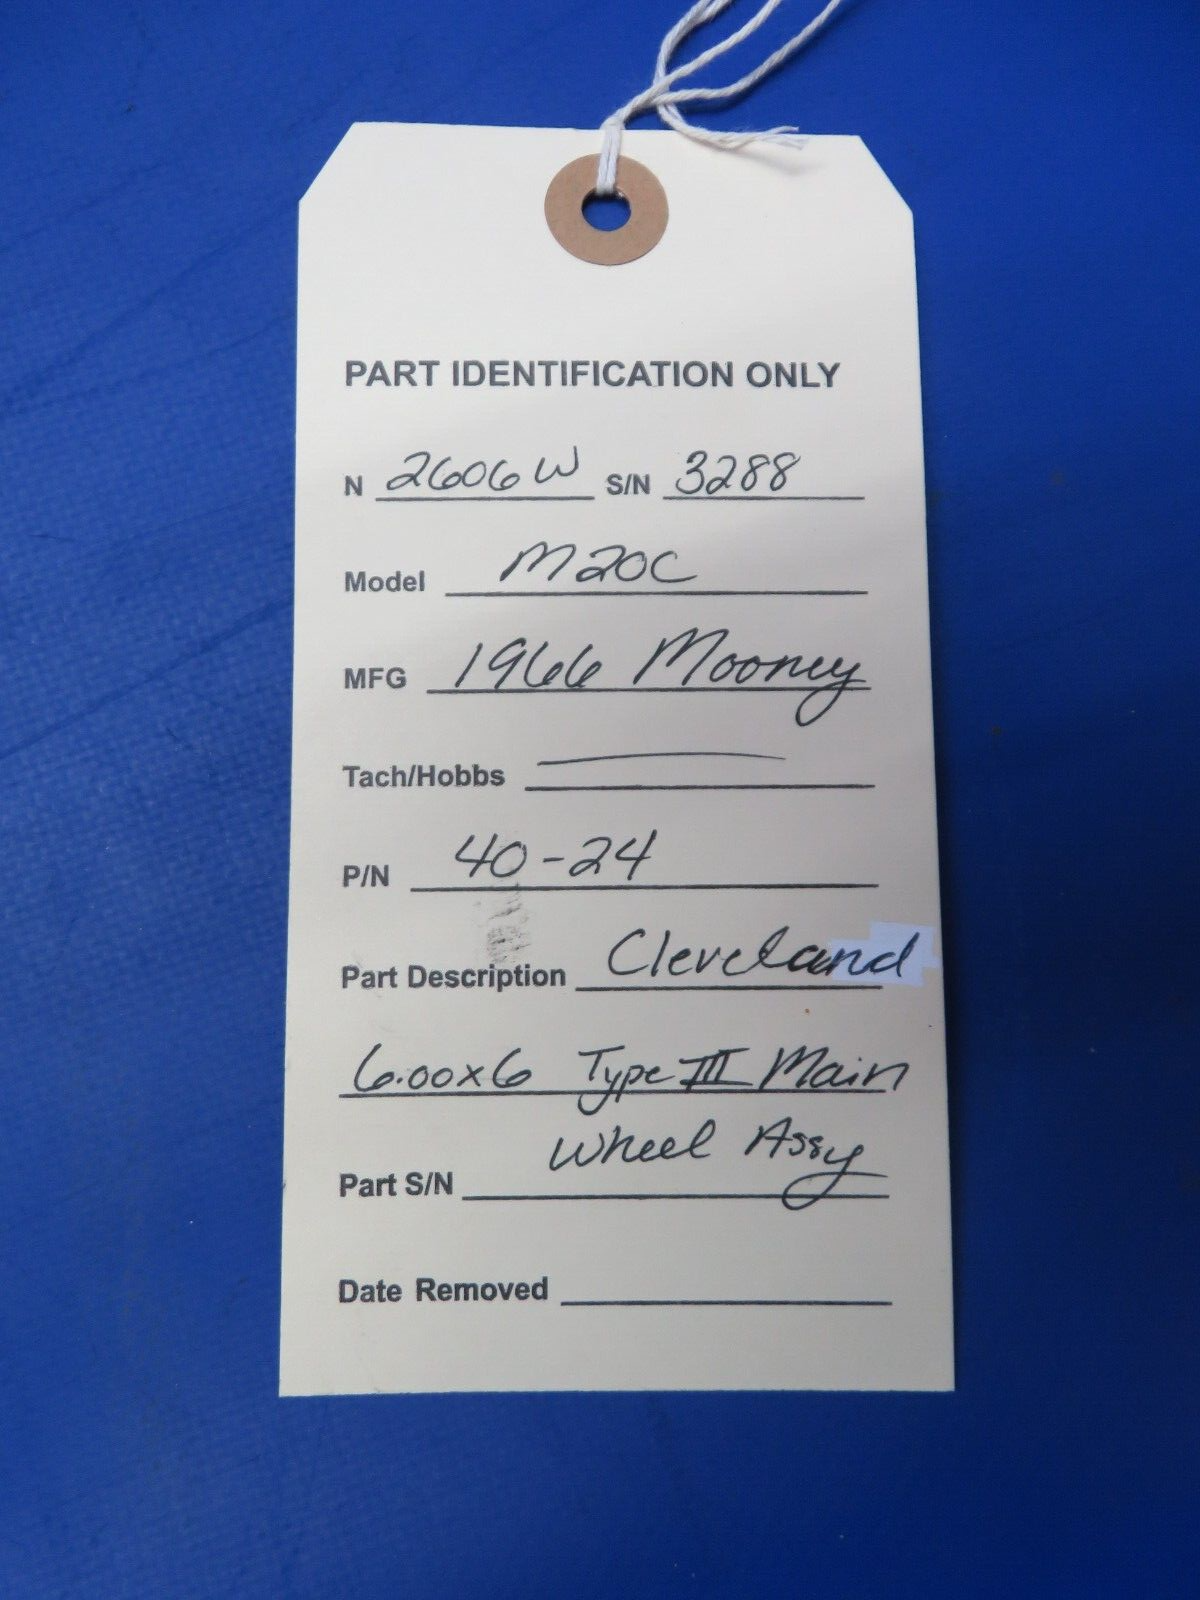 PART IDENTIFICATION ONLY
N 2606W S/N 3288
Model M20C
MFG 1966 Mooney
Tach/Hobbs
P/N 40-24
Part Description Cleveland
6.00x6 Type III Main
Wheel Assy
Part S/N
Date Removed